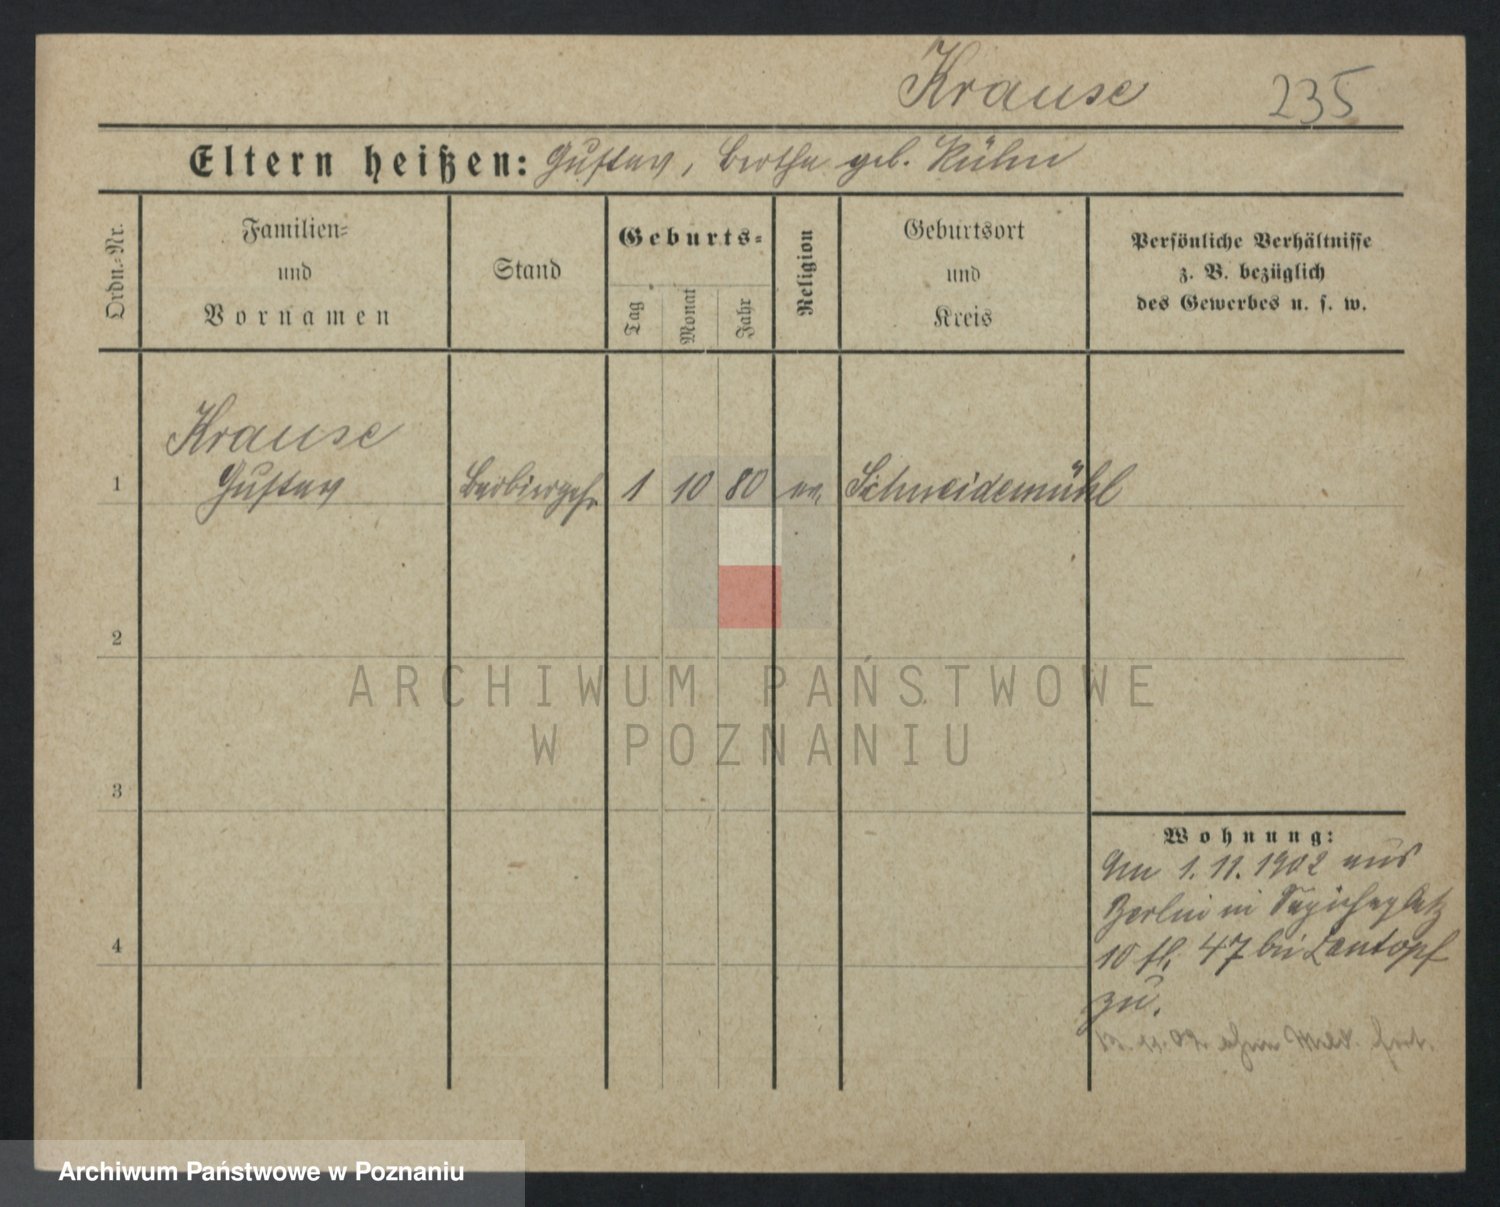 Krause 235
Eltern heißen: Gustav, Bertha geb. Kühn
Ordn.-Nr.
Familien-
und
Vornamen
Stand
Geburts-
Tag
Monat
Jahr
Religion
Geburtsort
und
Kreis
Persönliche Verhältnisse
z. B. bezüglich
des Gewerbes u. s. w.
Krause
1 Gustav Barbiergeh. 1 10 80 ev. Schneidemühl
2
ARCHIWUM PAŃSTWOWE
W POZNANIU
3
Wohnung:
Am 1. 11. 1902 aus
Berlin in Sapiehaplatz
10 11. 47 bei Lantopf
zu.
4
ohne Meld. fort.
Archiwum Państwowe w Poznaniu